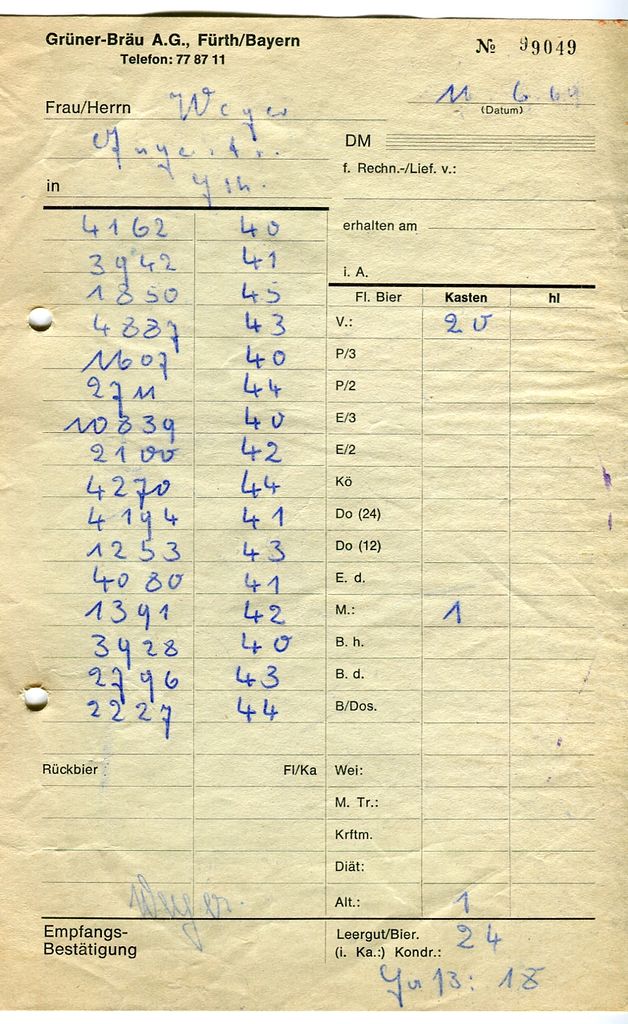 Grüner-Bräu A.G., Fürth/Bayern
Telefon: 77 87 11
№ 99049
Frau/Herrn Weyer
11 6 69
(Datum)
DM
f. Rechn.-/Lief. v.:
in
erhalten am
i. A.
4162 40
3942 41
1850 45
4887 43
1607 40
2711 44
10839 40
2100 42
4270 44
4194 41
1253 43
4080 41
1391 42
3928 40
2796 43
2227 44
Fl. Bier Kasten hl
V.: 20
P/3
P/2
E/3
E/2
Kö
Do (24)
Do (12)
E. d.
M.: 1
B. h.
B. d.
B/Dos.
Rückbier Fl/Ka
Wei:
M. Tr.:
Krftm.
Diät:
Alt.: 1
Weyer
Empfangs-
Bestätigung
Leergut/Bier. 24
(i. Ka.:) Kondr.:
13: 18